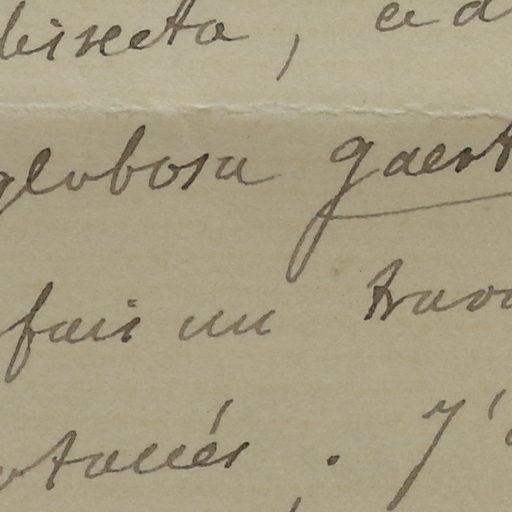 bisecta, ed
globosa gaert
fais un trava
otacés. J'